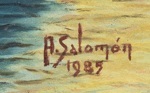 A. Salomón
1985